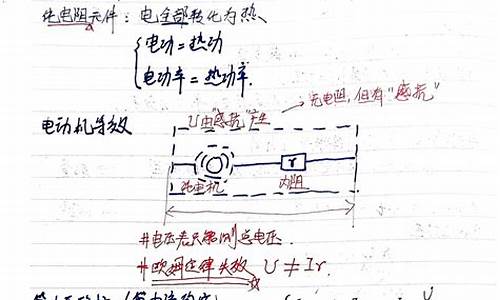 纯电阻元件：电全部转化为热、
电功=热功
电功率=热功率.
无电阻，但有“感抗”
电动机等效
U由“感抗”产生
r
纯电机
内阻
#电压表只能测总电压.
#欧姆定律失效 U≠Ir.